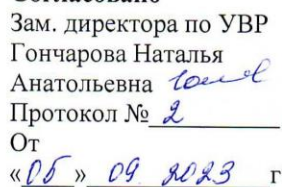 Согласовано
Зам. директора по УВР
Гончарова Наталья
Анатольевна
Протокол № 2
От
«05» 09 2023 г